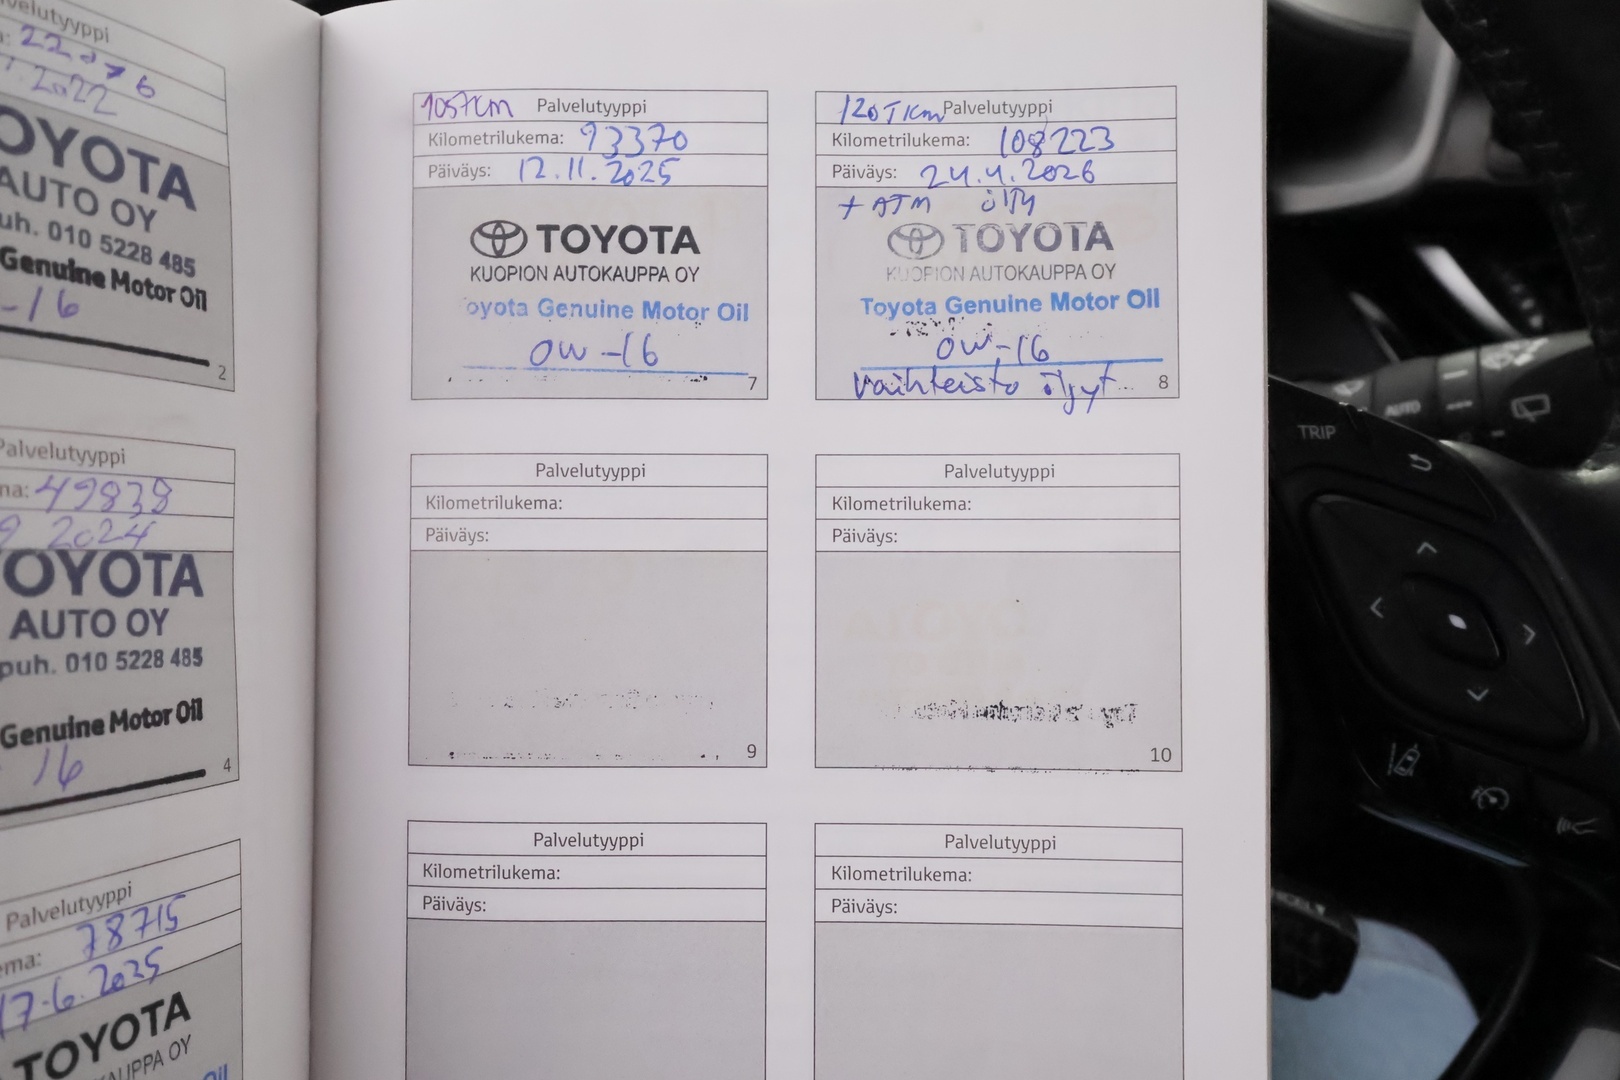 Palvelutyyppi
22
2022
OYOTA
AUTO OY
uh. 010 5228 485
Genuine Motor Oil
-16
2
Palvelutyyppi
na: 49838
9 2024
OYOTA
AUTO OY
puh. 010 5228 485
Genuine Motor Oil
16
4
Palvelutyyppi
ema: 78715
17.6.2025
TOYOTA
AUPPA OY
Oil
105TKm Palvelutyyppi
Kilometrilukema: 93370
Päiväys: 12.11.2025
TOYOTA
KUOPION AUTOKAUPPA OY
oyota Genuine Motor Oil
0W-16
7
120TKm Palvelutyyppi
Kilometrilukema: 108223
Päiväys: 24.4.2026
+ ATM öljy
TOYOTA
KUOPION AUTOKAUPPA OY
Toyota Genuine Motor Oil
0W-16
vaihteisto öljyt
8
Palvelutyyppi
Kilometrilukema:
Päiväys:
9
Palvelutyyppi
Kilometrilukema:
Päiväys:
10
Palvelutyyppi
Kilometrilukema:
Päiväys:
Palvelutyyppi
Kilometrilukema:
Päiväys:
AUTO
TRIP